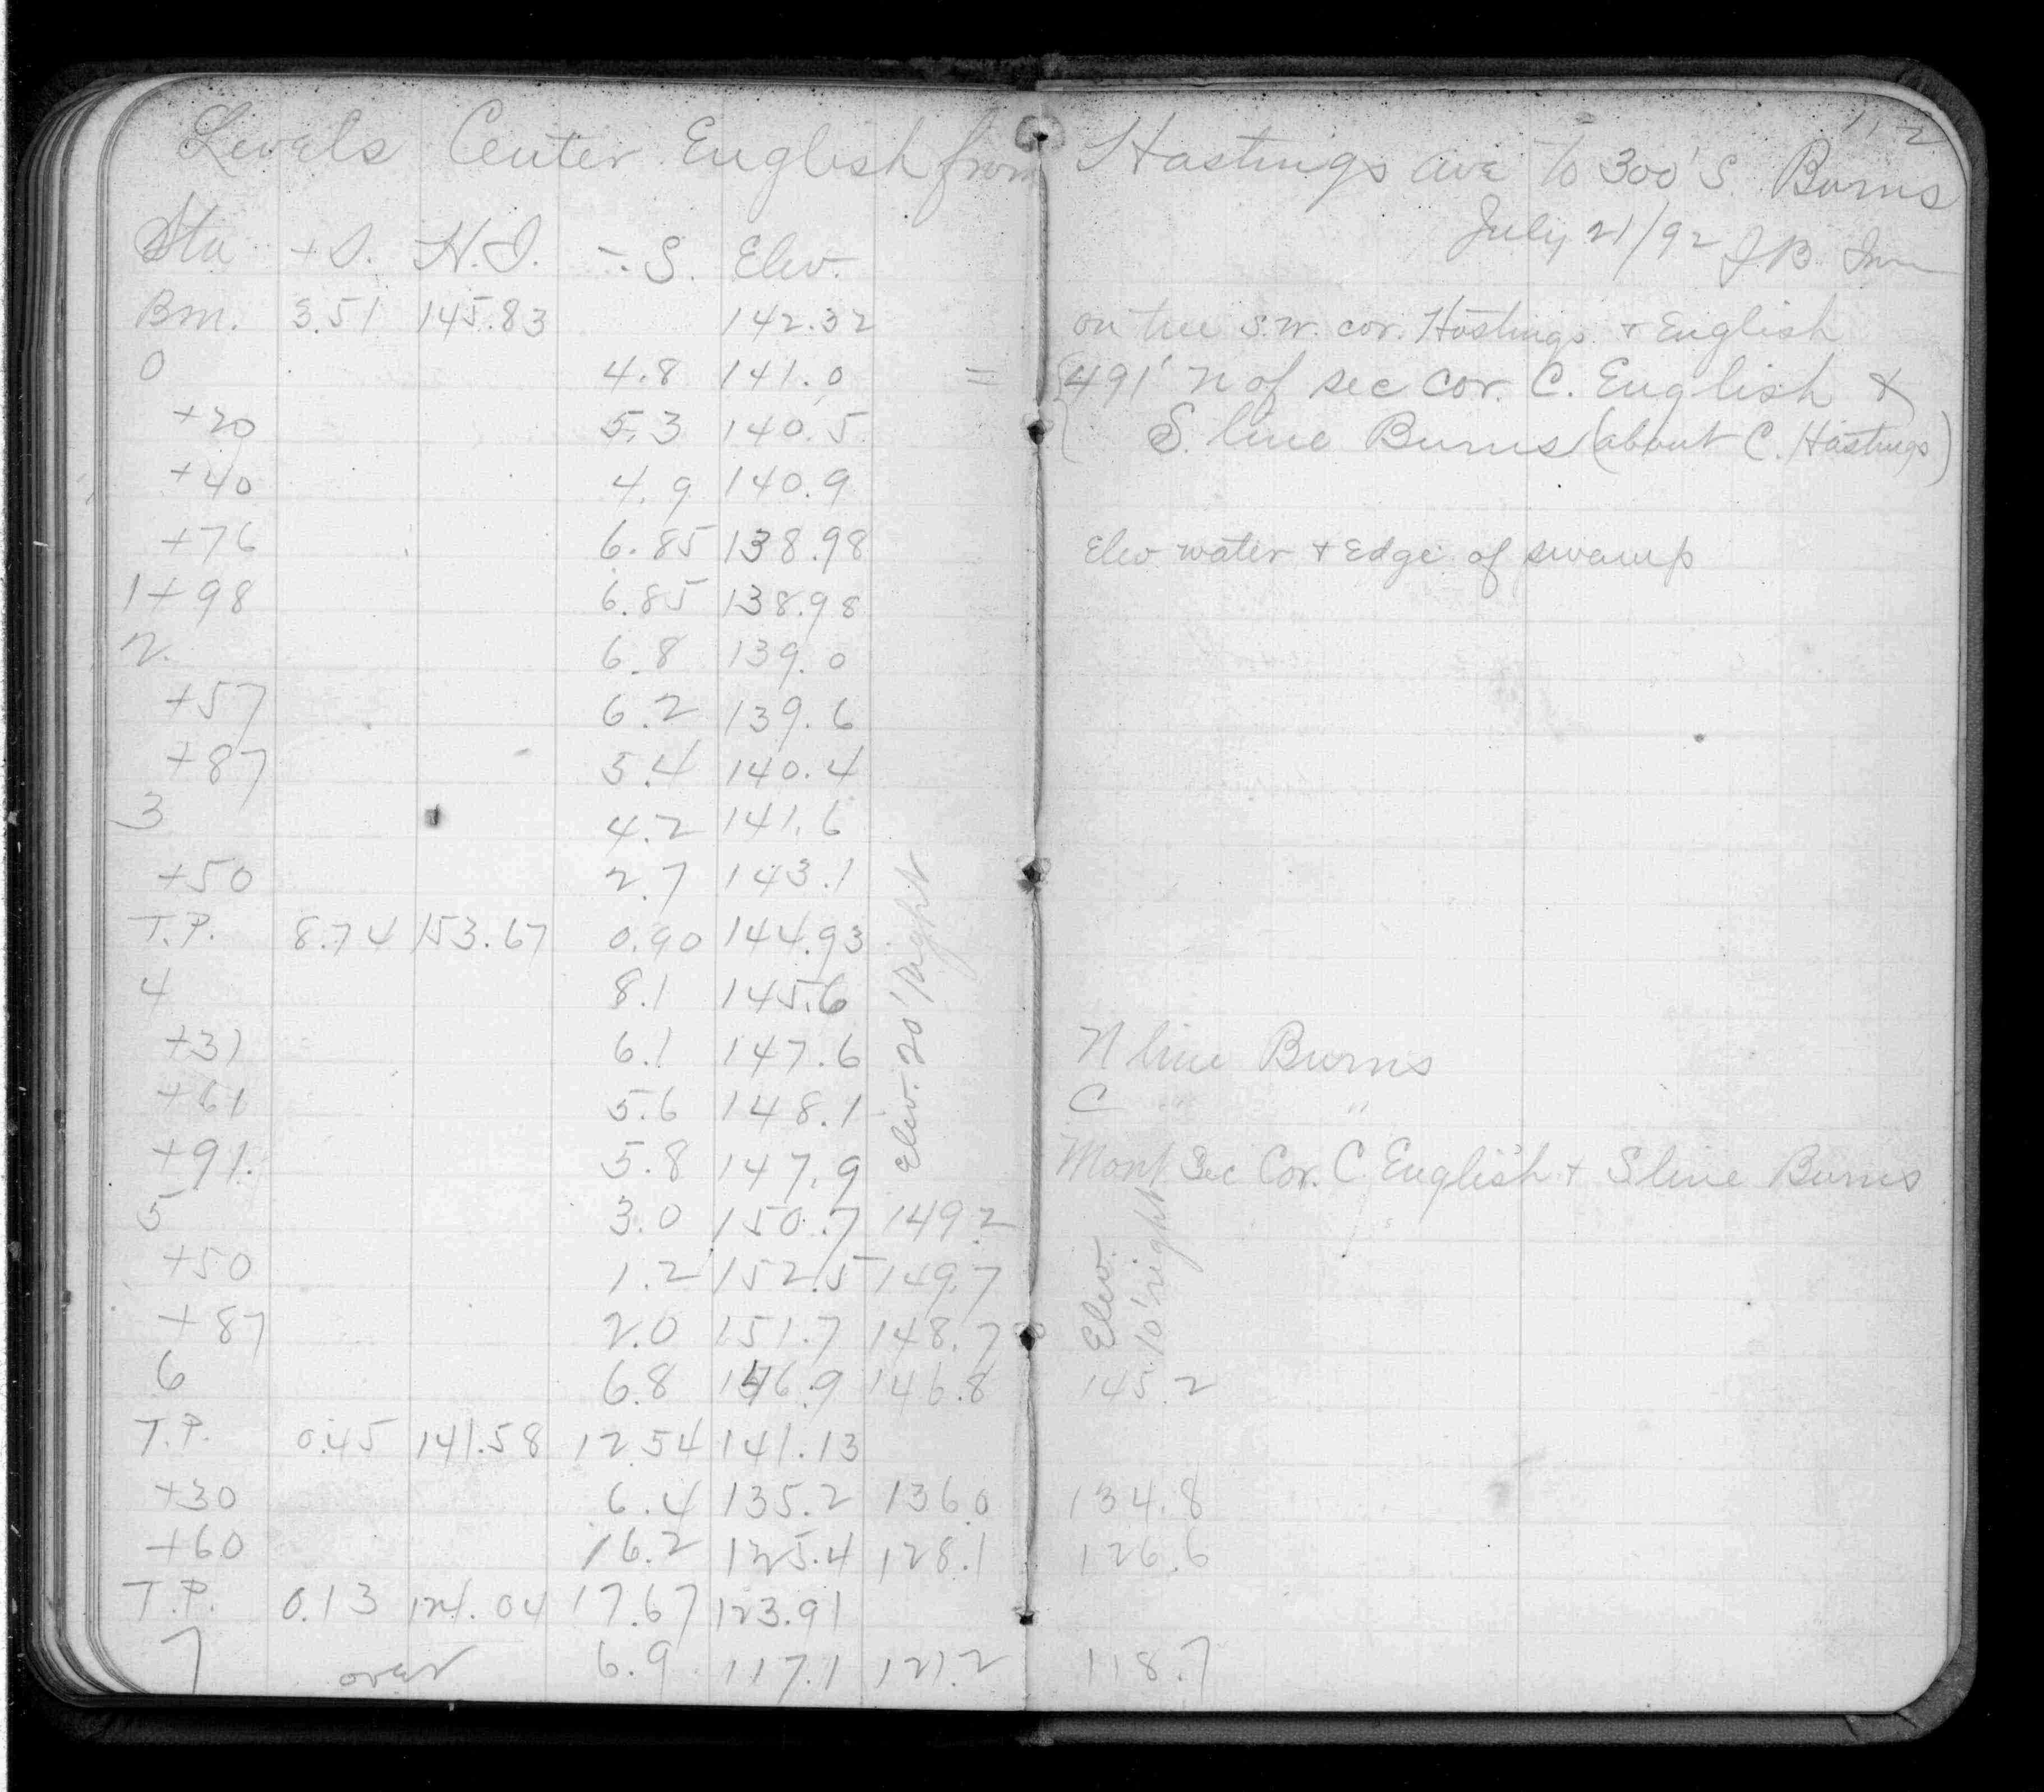 112
Levels Center English from Hastings ave to 300' S. Burns
July 21/92 J.B.
Sta +S. H.I. -.S. Elev.
Bm. 3.51 145.83 142.32 on tree s.w. cor. Hastings + English
0 4.8 141.0 = {491' N of sec cor. C. English &
+20 5.3 140.5 S. line Burns (about C. Hastings)
+40 4.9 140.9
+76 6.85 138.98 Elev water + Edge of swamp
1+98 6.85 138.98
2. 6.8 139.0
+57 6.2 139.6
+87 5.4 140.4
3 4.2 141.6
+50 2.7 143.1
T.P. 8.74 153.67 0.90 144.93
4 8.1 145.6
+31 6.1 147.6 N line Burns
+61 5.6 148.1 C " "
+91. 5.8 147.9 Mont Sec Cor. C English + S line Burns
Elev. 20' right
Elev. 10' right
5 3.0 150.7 149.2
+50 1.2 152.5 149.7
+87 2.0 151.7 148.7
6 6.8 146.9 146.8 145.2
T.P. 0.45 141.58 12.54 141.13
+30 6.4 135.2 136.0 134.8
+60 16.2 125.4 128.1 126.6
T.P. 0.13 124.04 17.67 123.91
7 over 6.9 117.1 121.2 118.7